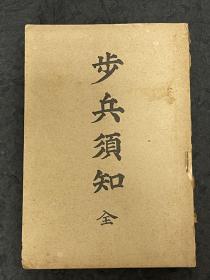 步兵須知
全